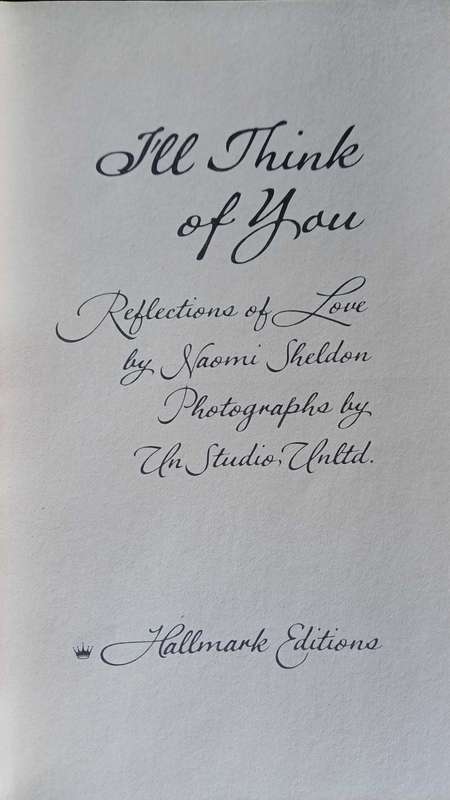 I'll Think
of You
Reflections of Love
by Naomi Sheldon
Photographs by
Un Studio, Unltd.
Hallmark Editions